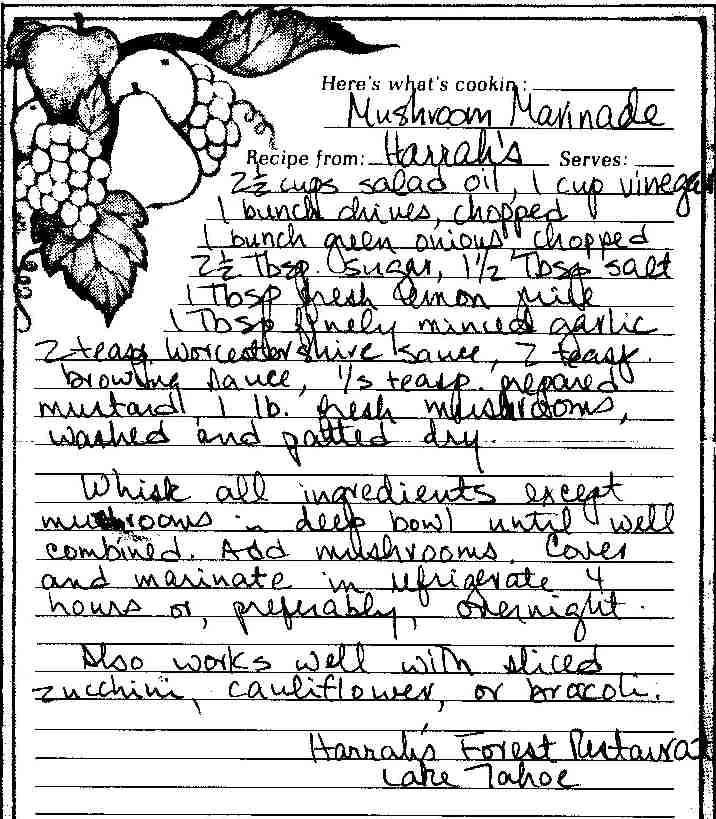 Here's what's cookin:
Mushroom Marinade
Recipe from: Harrah's Serves:
2½ cups salad oil, 1 cup vinegar
1 bunch chives, chopped
1 bunch green onions chopped
2½ Tbsp. sugar, 1½ Tbsp salt
1 Tbsp fresh lemon juice
1 Tbsp finely minced garlic
2 teasp Worcestershire sauce, 2 teasp.
browning sauce, 1/3 teasp. prepared
mustard, 1 lb. fresh mushrooms,
washed and patted dry.
Whisk all ingredients except
mushrooms in deep bowl until well
combined. Add mushrooms. Cover
and marinate in refrigerate 4
hours or, preferably, overnight.
Also works well with sliced
zucchini, cauliflower, or brocoli.
Harrah's Forest Restaurat
Lake Tahoe